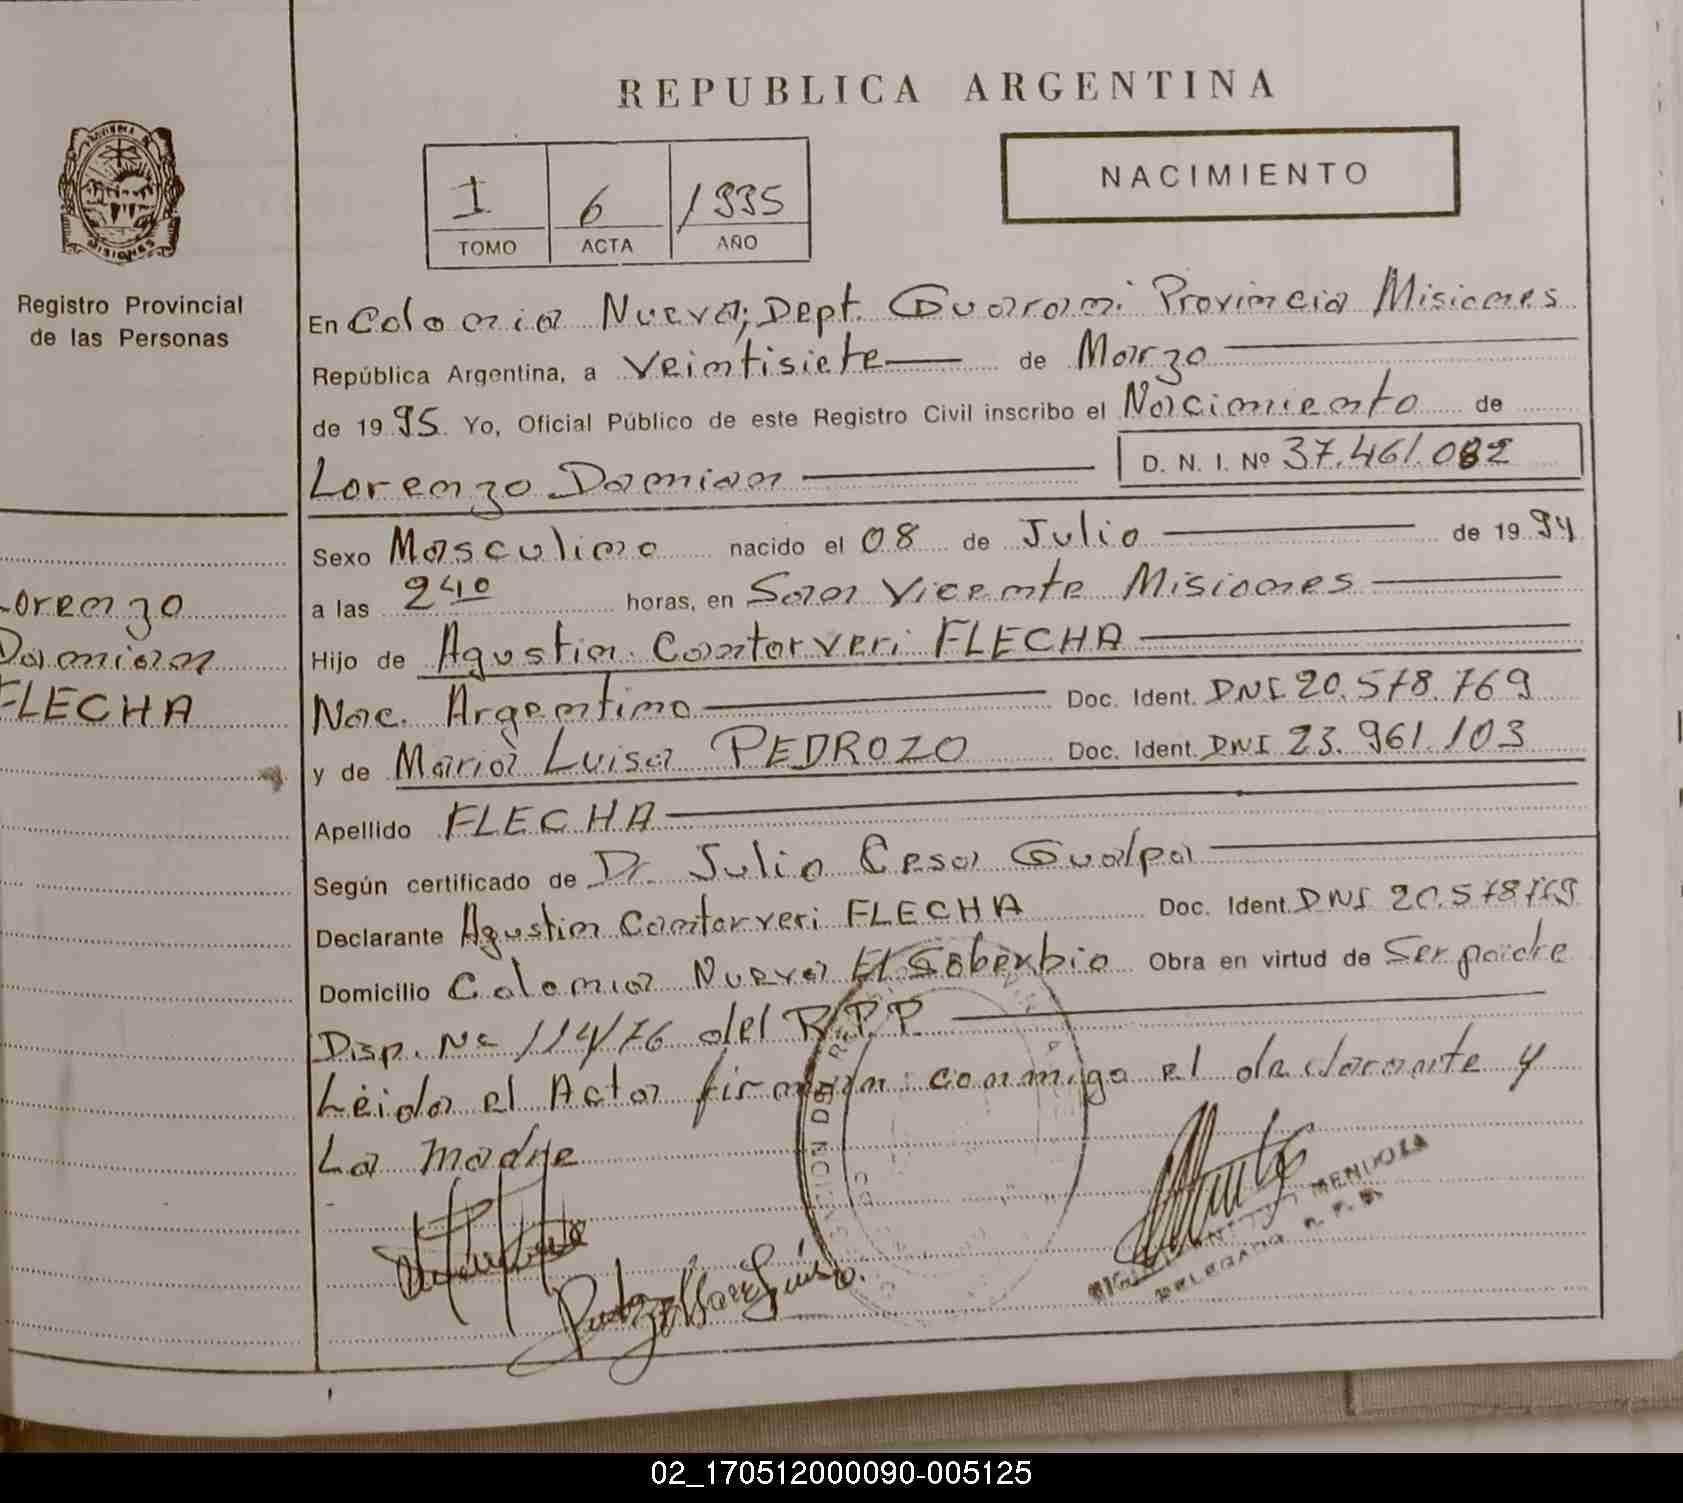 REPUBLICA ARGENTINA
NACIMIENTO
I 6 1995
TOMO ACTA AÑO
MISIONES
Registro Provincial
de las Personas
Lorenzo
Damian
FLECHA
En Colonia Nueva; Dept. Guarani Provincia Misiones
República Argentina, a Veintisiete de Marzo
de 1995 Yo, Oficial Público de este Registro Civil inscribo el Nacimiento de
Lorenzo Damian D. N. I. Nº 37.461.082
Sexo Masculino nacido el 08 de Julio de 1994
a las 2 40 horas, en San Vicente Misiones
Hijo de Agustin Cantarveri FLECHA
Nac. Argentino Doc. Ident. DNI 20.578.769
y de Maria Luisa PEDROZO Doc. Ident. DNI 23.961.103
Apellido FLECHA
Según certificado de Dr. Julio Cesar Gualpa
Declarante Agustin Cantarveri FLECHA Doc. Ident. DNI 20.578769
Domicilio Colonia Nueva El Soberbio Obra en virtud de Ser padre
Disp. Nº 114/76 del R.P.P
Leida el Acta firman conmigo el declarante y
La madre
MENDOZA
DELEGADO R. P. P.
02_170512000090-005125